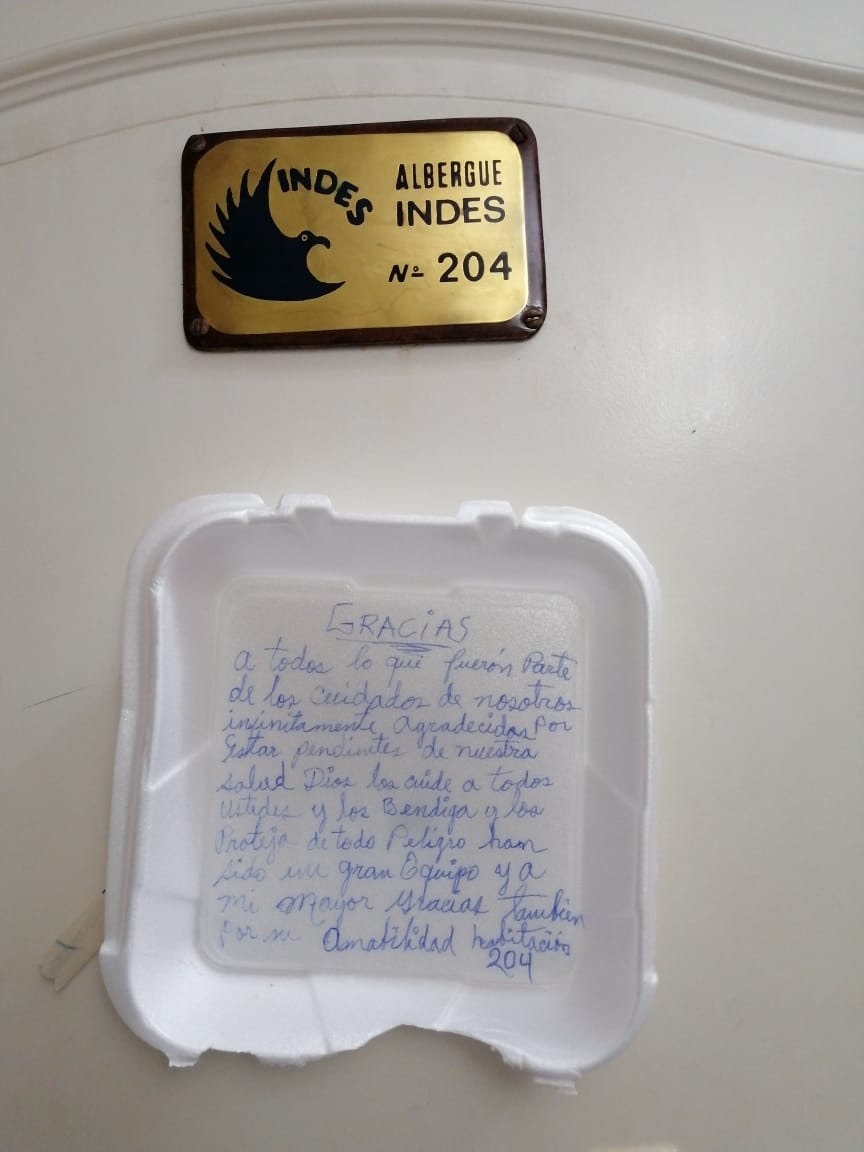 INDES
ALBERGUE
INDES
Nº 204
GRACiAS
A todos lo que fuerón Parte
de los cuidados de nosotros
infinitamente Agradecidos Por
Estar pendientes de nuestra
salud Dios los cuide a todos
ustedes y los Bendiga y los
Proteja de todo Peligro han
sido un gran Equipo y a
mi Mayor Gracias tambien
Por su Amabilidad habitación
204